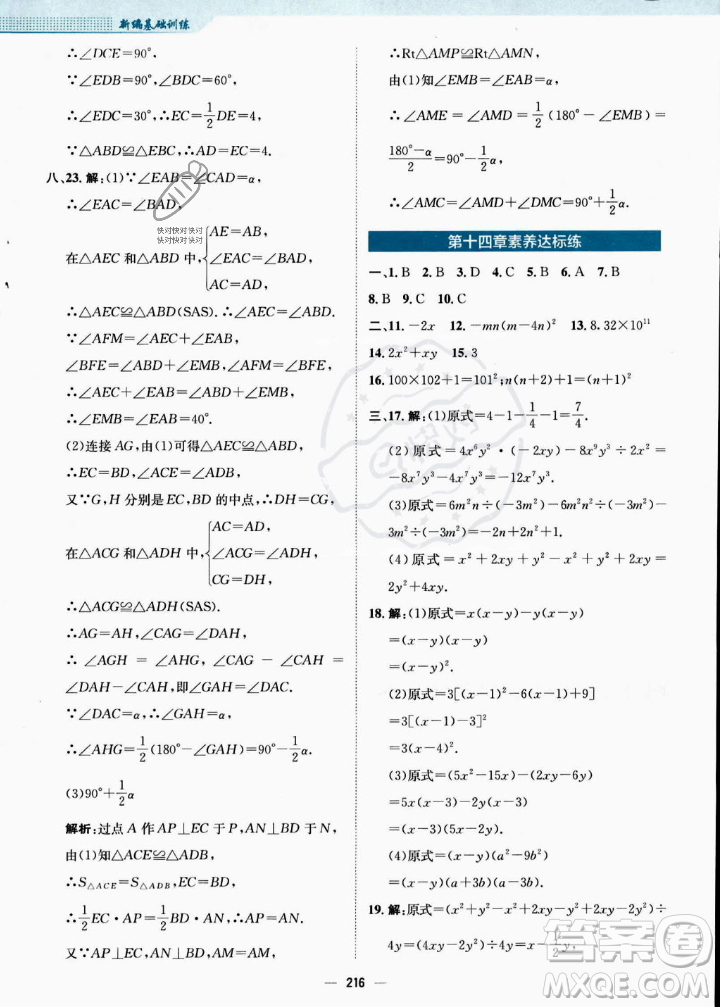 新编基础训练
∴∠DCE=90°.
∵∠EDB=90°,∠BDC=60°,
∴∠EDC=30°,∴EC=1/2DE=4,
∵△ABD≌△EBC,∴AD=EC=4.
八、23.解:(1)∵∠EAB=∠CAD=α,
∴∠EAC=∠BAD,
快对快对快对
快对快对快对
在△AEC和△ABD中,{AE=AB, ∠EAC=∠BAD, AC=AD,
∴△AEC≌△ABD(SAS).∴∠AEC=∠ABD.
∵∠AFM=∠AEC+∠EAB,
∠BFE=∠ABD+∠EMB,
∴∠AEC+∠EAB=∠ABD+∠EMB,
∴∠EMB=∠EAB=40°.
(2)连接AG,由(1)可得△AEC≌△ABD,
∴EC=BD,∠ACE=∠ADB.
又∵G,H分别是EC,BD的中点,∴DH=CG,
在△ACG和△ADH中,{AC=AD, ∠ACG=∠ADH, CG=DH,
∴△ACG≌△ADH(SAS).
∴AG=AH,∠CAG=∠DAH.
∴∠AGH=∠AHG,∠CAG-∠CAH=
∠DAH-∠CAH,即∠GAH=∠DAC.
∵∠DAC=α,∴∠GAH=α,
∴∠AHG=1/2(180°-α)=90°-1/2α.
(3)90°+1/2α
解析:过点A作AP⊥EC于P,AN⊥BD于N,
由(1)知△ACE≌△ADB,
∴S△ACE=S△ADB,EC=BD.
∴1/2EC·AP=1/2BD·AN,∴AP=AN.
又∵∠APM=∠ANM=90°,AM=AM,
∴Rt△AMP≌Rt△AMN,
由(1)知∠EMB=∠EAB=α,
∴∠AME=∠AMD=1/2(180°-∠EMB)=
(180°-α)/2=90°-1/2α,
∴∠AMC=∠AMD+∠DMC=90°+1/2α.
第十四章素养达标练
一、1.B 2.B 3.D 4.C 5.D 6.A 7.B
8.B 9.C 10.C
二、11.-2x 12.-mn(m-4n)² 13.8.32×10¹¹
14.2x²+xy 15.3
16.100×102+1=101²;n(n+2)+1=(n+1)²
三、17.解:(1)原式=4-1-1/4-1=7/4.
(2)原式=4x⁶y²·(-2xy)-8x⁹y³÷2x²=
-8x⁷y³-4x⁷y³=-12x⁷y³.
(3)原式=6m²n÷(-3m²)-6m²n²÷(-3m²)-
3m²÷(-3m²)=-2n+2n²+1.
(4)原式=x²+2xy+y²-x²+2xy+y²=
2y²+4xy.
18.解:(1)原式=x(x-y)-y(x-y)
=(x-y)(x-y)
=(x-y)².
(2)原式=3[(x-1)²-6(x-1)+9]
=3[(x-1)-3]²
=3(x-4)².
(3)原式=(5x²-15xy)-(2xy-6y²)
=5x(x-3y)-2y(x-3y)
=(5x-2y)(x-3y).
(4)原式=(a²-4b²)(a²-9b²)
=(a+2b)(a-2b)(a+3b)(a-3b).
19.解:原式=(x²+y²-x²+2xy-y²+2xy-2y²)÷
4y=(4xy-2y²)÷4y=x-1/2y.
216
答案圈
MXQE.COM